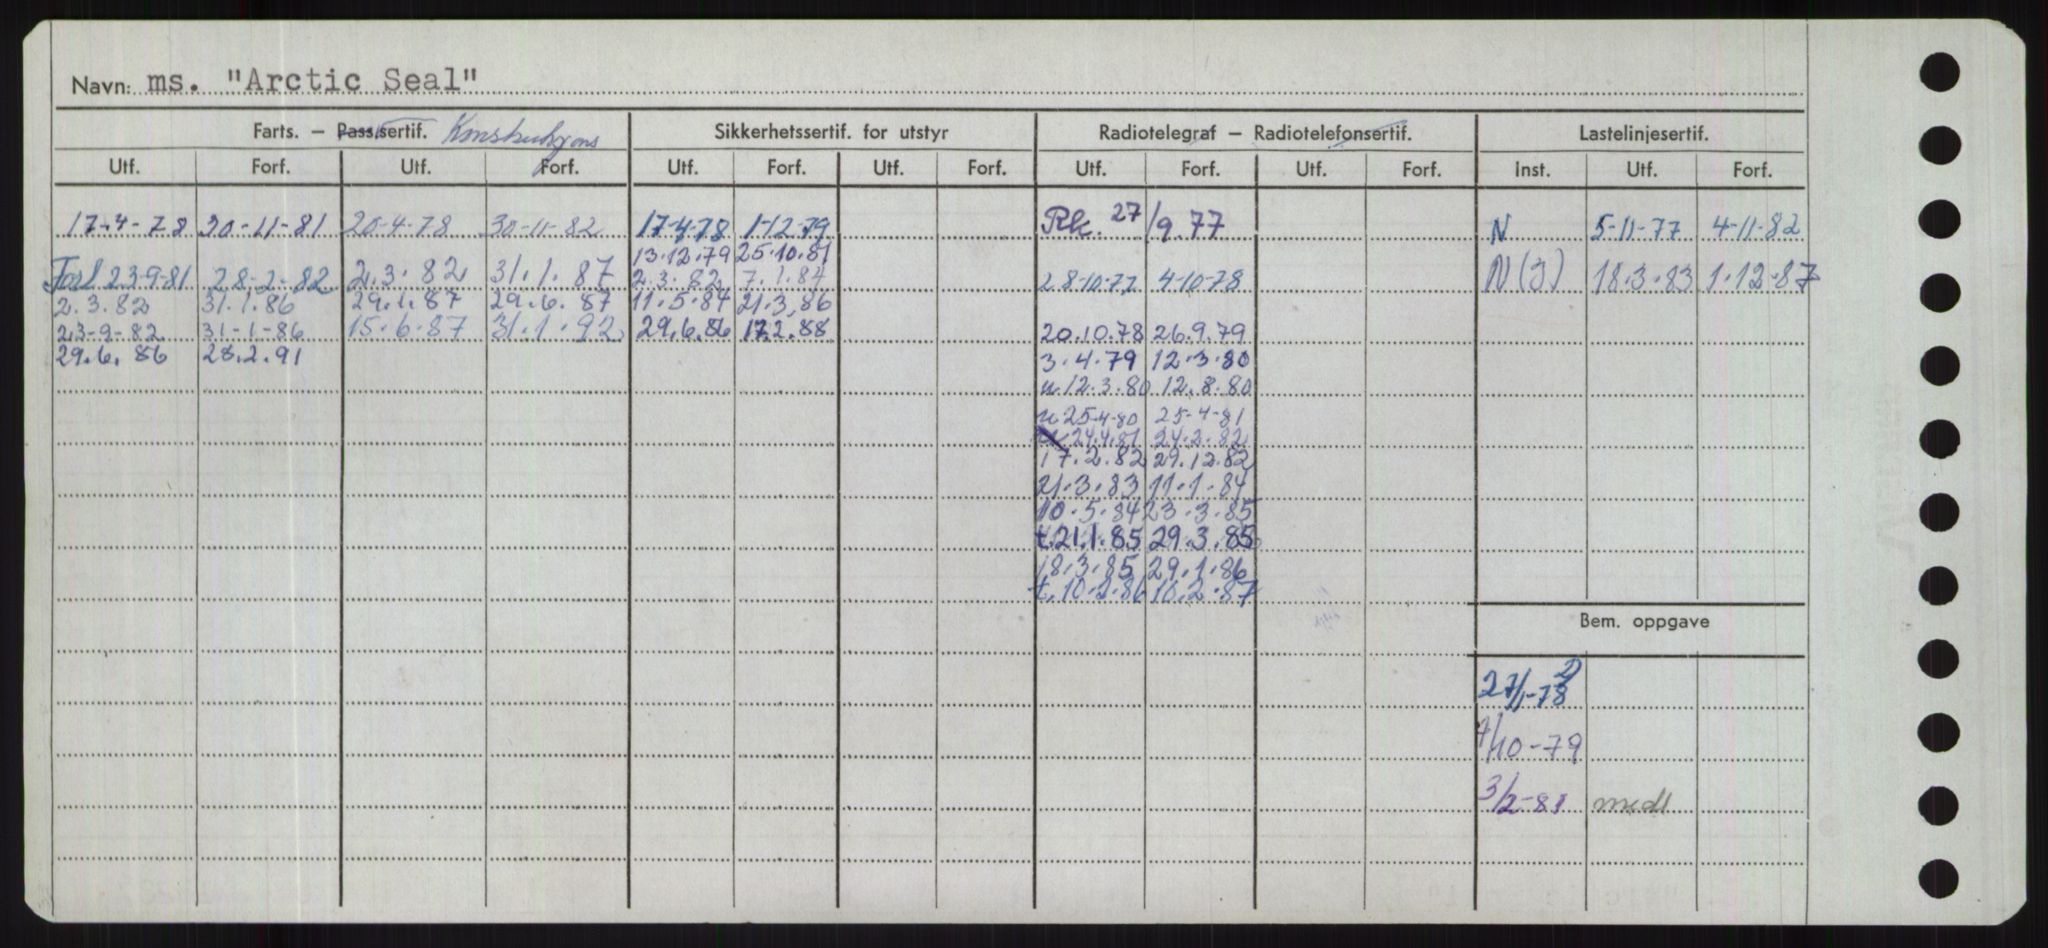 Navn: ms. "Arctic Seal"
Farts. – Pass.sertif. Konstruksjons Sikkerhetssertif. for utstyr Radiotelegraf – Radiotelefonsertif. Lastelinjesertif.
Utf. Forf. Utf. Forf. Utf. Forf. Utf. Forf. Utf. Forf. Utf. Forf. Inst. Utf. Forf.
17-4-78 30-11-81 20-4-78 30-11-82 17-4-78 1-12-79 Rk. 27/9.77 N 5-11-77 4-11-82
13.12.79 25.10.81
Forl 23-9-81 28-2-82 2.3.82 31.1.87 2.3.82 7.1.84 28-10-77 4-10-78 N(J) 18.3.83 1.12.87
2.3.82 31.1.86 29.1.87 29.6.87 11.5.84 21.3.86
23-9-82 31-1-86 15.6.87 31.1.92 29.6.86 17.2.88 20.10.78 26.9.79
29.6.86 28.2.91 3.4.79 12.3.80
u 12.3.80 12.8.80
u 25-4-80 25-4-81
24.4.81 24.2.82
17.2.82 29.12.82
21.3.83 11.1.84
10.5.84 23.3.85
t.21.1.85 29.3.85
18.3.85 29.1.86
t.10.2.86 10.2.87
Bem. oppgave
27/11-78
7/10-79
3/2-81 medl